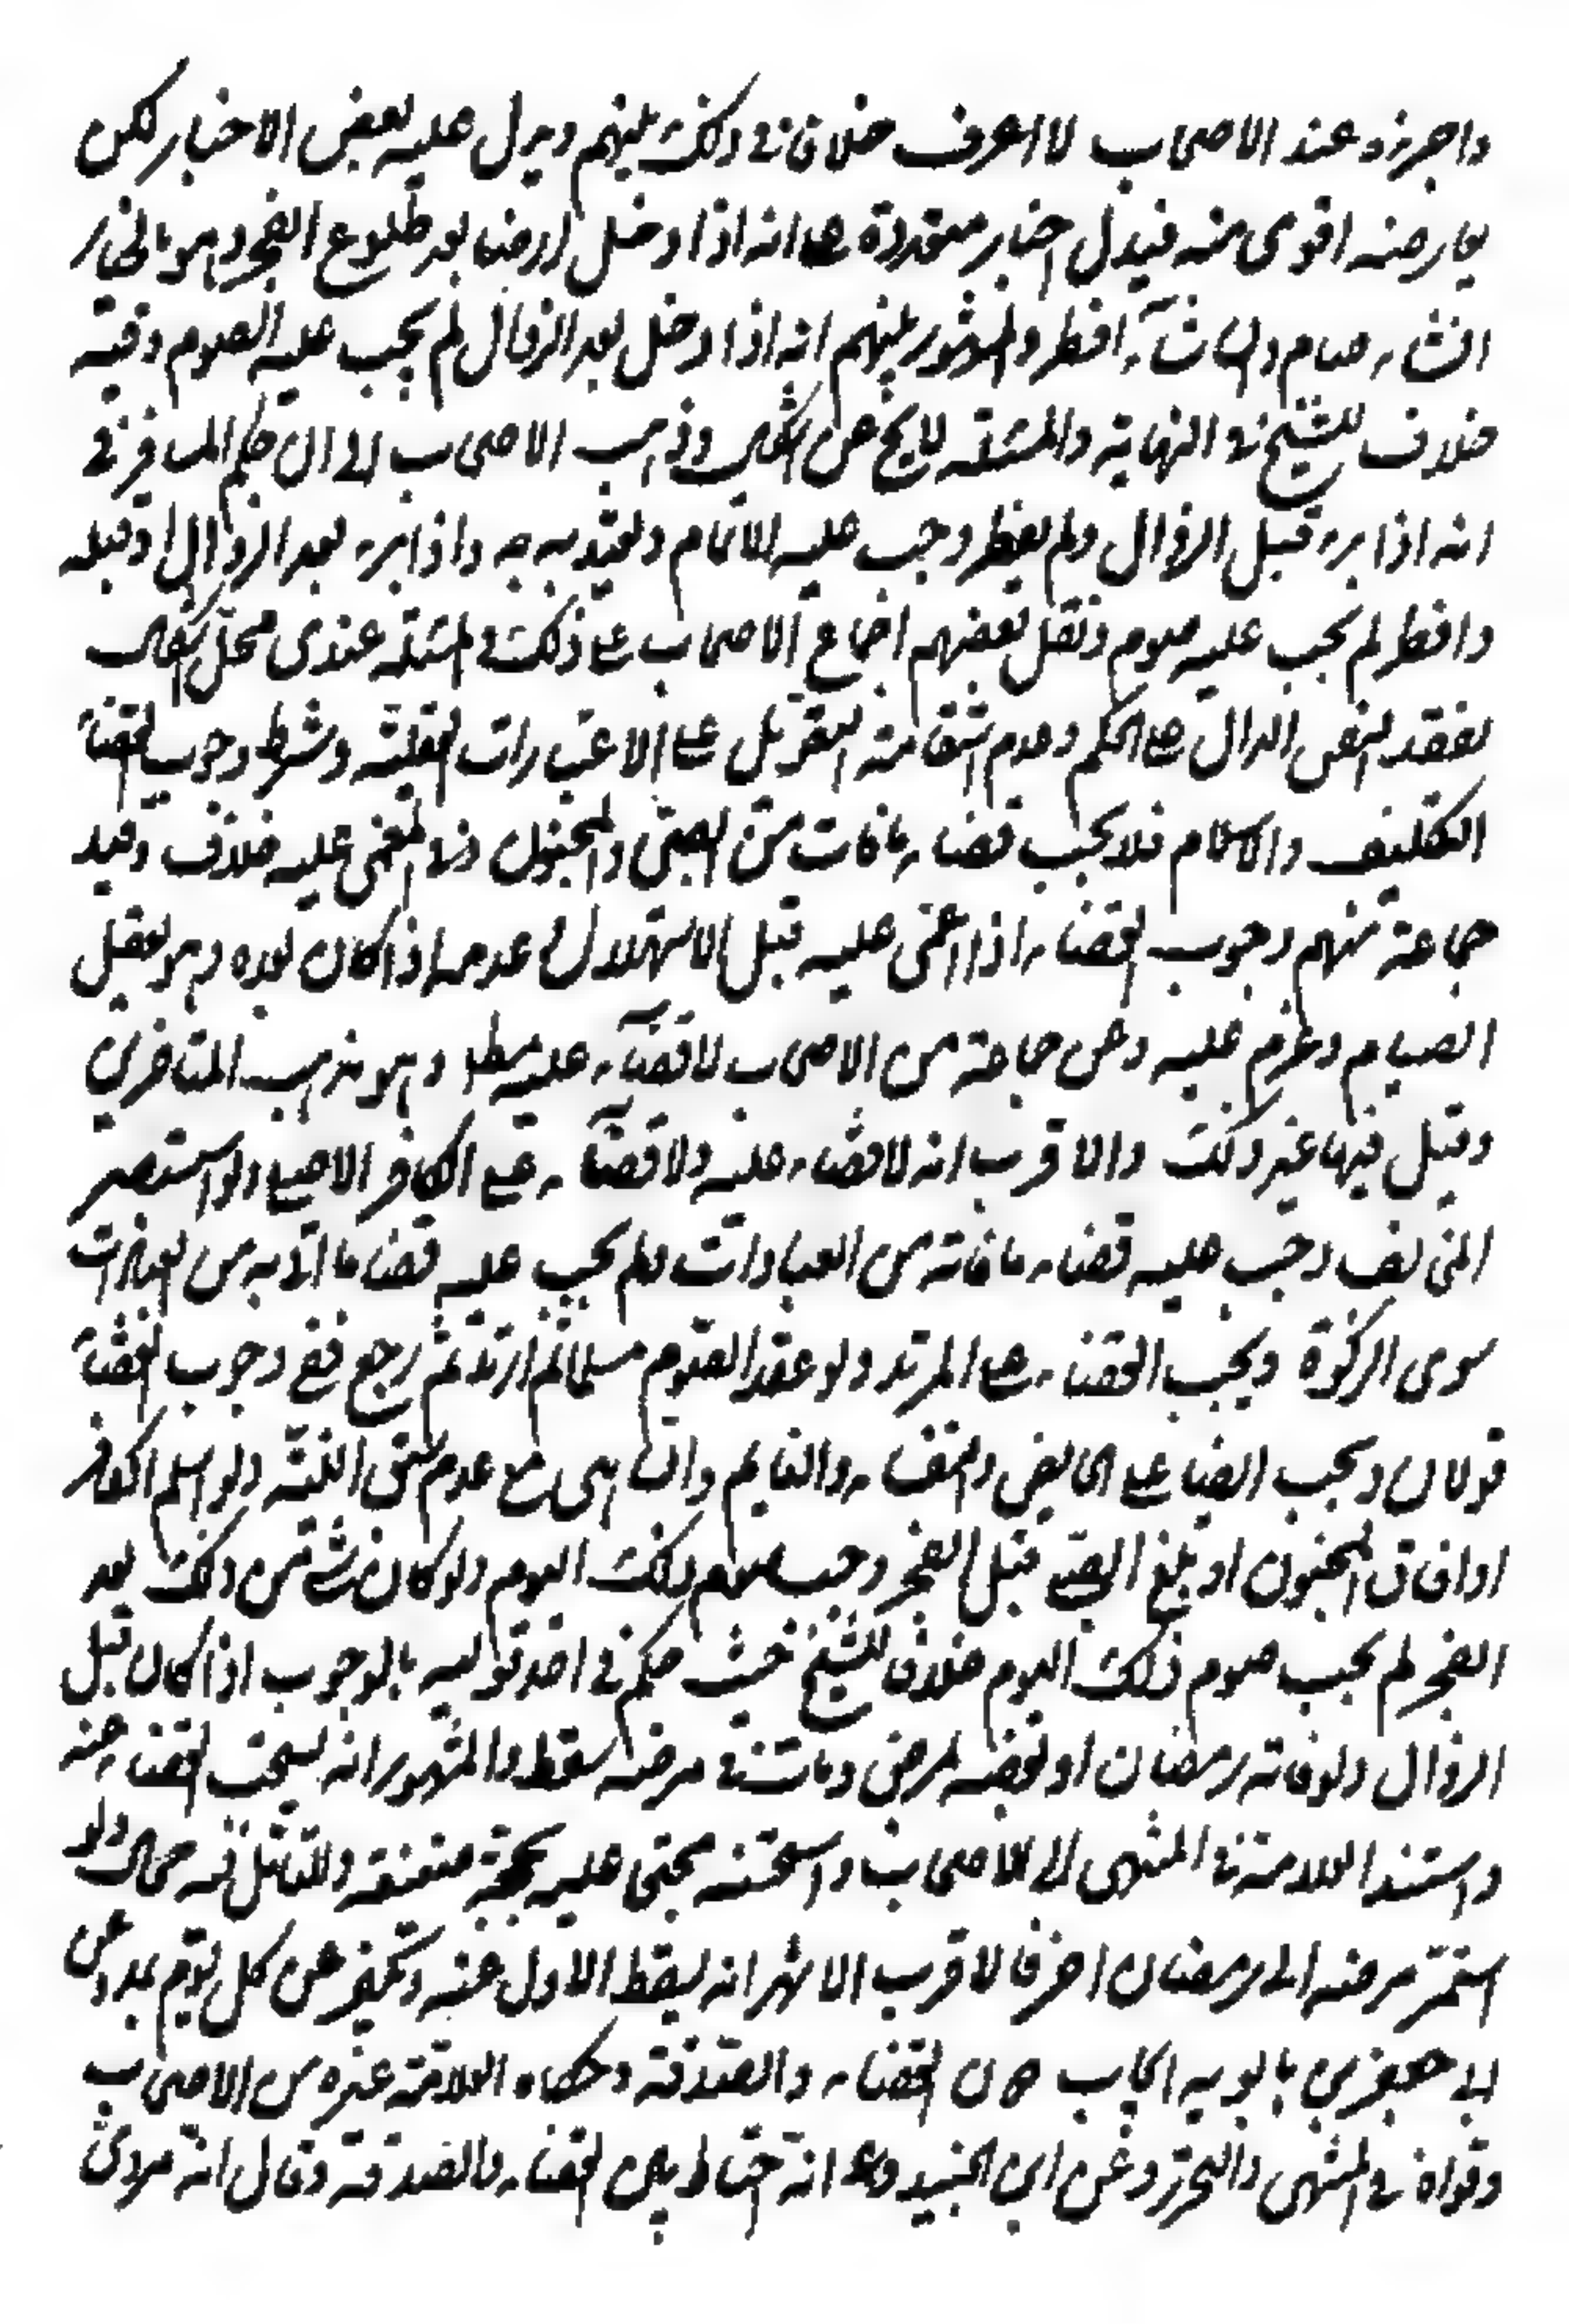 واجزءه عند الاصحاب لا اعرف خلافا في ذلك بينهم ويدل عليه بعض الاخبار لكن
يعارضه اقوى منه فيدل اخبار متعددة على انه اذا دخل ارضا بعد طلوع الفجر وهو بالخيار
ان شاء صام وان شاء افطر والمشهور بينهم انه اذا دخل بعد الزوال لم يجب عليه الصوم وفيه
خلاف للشيخ في النهاية والمسئلة لا يخ عن اشكال وذهب الاصحاب الى ان حكم المسافر في
انه اذا برء قبل الزوال ولم يفطر وجب عليه الاتمام ويعتد به واذا برء بعد الزوال او قبله
وافطر لم يجب عليه صوم ونقل بعضهم اجماع الاصحاب على ذلك والمسئلة عندي محل اشكال
لفقد النص الدال على الحكم وعدم استقامة التعويل على الاعتبارات العقلية وشرط وجوب القضاء
التكليف والاسلام فلا يجب قضاء ما فات من الصبي والمجنون وفي المغمى عليه خلاف وقيد
جماعة منهم وجوب القضاء اذا اغمى عليه قبل الاستهلال وعدمه اذا كان بعده وهو يعقل
الصيام وعزم عليه وعن جماعة من الاصحاب لا قضاء عليه مطلقا وهو مذهب المتاخرين
وقيل فيها غير ذلك والاقرب انه لا قضاء عليه ولا قضاء على الكافر الاصلي ولو استبصر
المخالف وجب عليه قضاء ما فاته من العبادات ولم يجب عليه قضاء ما اتى به من العبادات
سوى الزكوة ويجب القضاء على المرتد ولو عقد الصوم مسلما ثم ارتد ثم رجع ففي وجوب القضاء
قولان ويجب القضاء على الحايض والنفساء والنايم والساهي مع عدم سبق النية ولو اسلم الكافر
او افاق المجنون او بلغ الصبي قبل الفجر وجب صوم ذلك اليوم ولو كان شئ من ذلك بعد
الفجر لم يجب صوم ذلك اليوم خلافا للشيخ حيث حكم في احد قوليه بالوجوب اذا كان قبل
الزوال ولو فاته رمضان او بعضه لمرض ومات في مرضه سقط والمشهور انه يستحب القضاء عنه
واستند العلامة في المنتهى الى الاصحاب واستحسنه محتجا عليه بحجة ضعيفة وللتامل فيه مجال ولو
استمر مرضه الى رمضان اخر فالاقرب الاشهر انه يسقط الاول عنه وتكفر عن كل يوم بمد وعن
ابي جعفر بن بابويه ايجاب القضاء والصدقة وحكاه العلامة عن غيره من الاصحاب
وقواه في المنتهى والتحرير وعن ابن الجنيد انه احتاط بين القضاء والصدقة وقال انه مروي